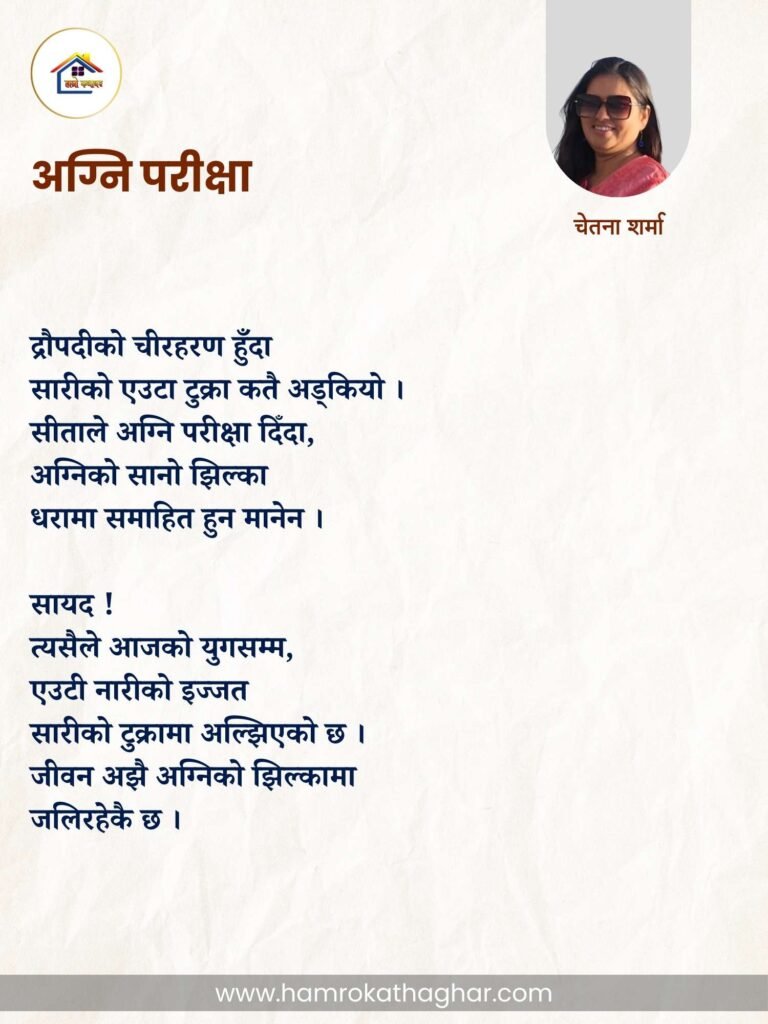 हाम्रो कथाघर
अग्नि परीक्षा
चेतना शर्मा
द्रौपदीको चीरहरण हुँदा
सारीको एउटा टुक्रा कतै अड्कियो ।
सीताले अग्नि परीक्षा दिँदा,
अग्निको सानो झिल्का
धरामा समाहित हुन मानेन ।
सायद !
त्यसैले आजको युगसम्म,
एउटी नारीको इज्जत
सारीको टुक्रामा अल्झिएको छ ।
जीवन अझै अग्निको झिल्कामा
जलिरहेकै छ ।
www.hamrokathaghar.com